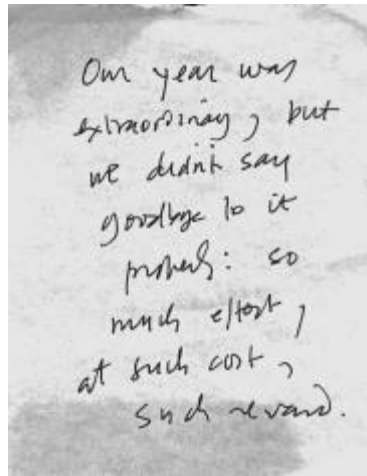 Our year was
extraordinary, but
we didn't say
goodbye to it
properly: so
much effort,
at such cost,
such reward.